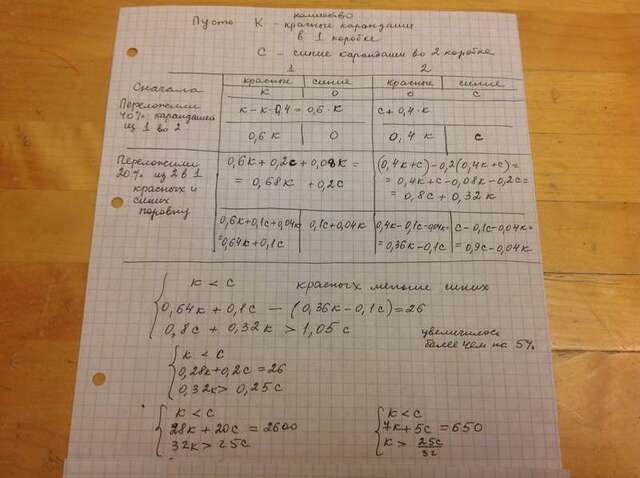 количество
Пусть К - красные карандаши
в 1 коробке
С - синие карандаши во 2 коробке
1 2
красные синие красные синие
Сначала К 0 0 С
Переложили
40% карандашей
из 1 во 2
к - к·0,4 = 0,6·к с + 0,4·к
0,6к 0 0,4к с
Переложили
20% из 2 в 1
красных и
синих
поровну
0,6к + 0,2с + 0,08к =
= 0,68к + 0,2с
(0,4к + с) - 0,2(0,4к + с) =
= 0,4к + с - 0,08к - 0,2с =
= 0,8с + 0,32к
0,6к + 0,1с + 0,04к 0,1с + 0,04к 0,4к - 0,1с - 0,04к с - 0,1с - 0,04к =
= 0,64к + 0,1с = 0,36к - 0,1с = 0,9с - 0,04к
к < с красных меньше синих
0,64к + 0,1с - (0,36к - 0,1с) = 26
0,8с + 0,32к > 1,05с увеличилось
более чем на 5%
к < с
0,28к + 0,2с = 26
0,32к > 0,25с
к < с
28к + 20с = 2600
32к > 25с
к < с
7к + 5с = 650
к > 25с/32